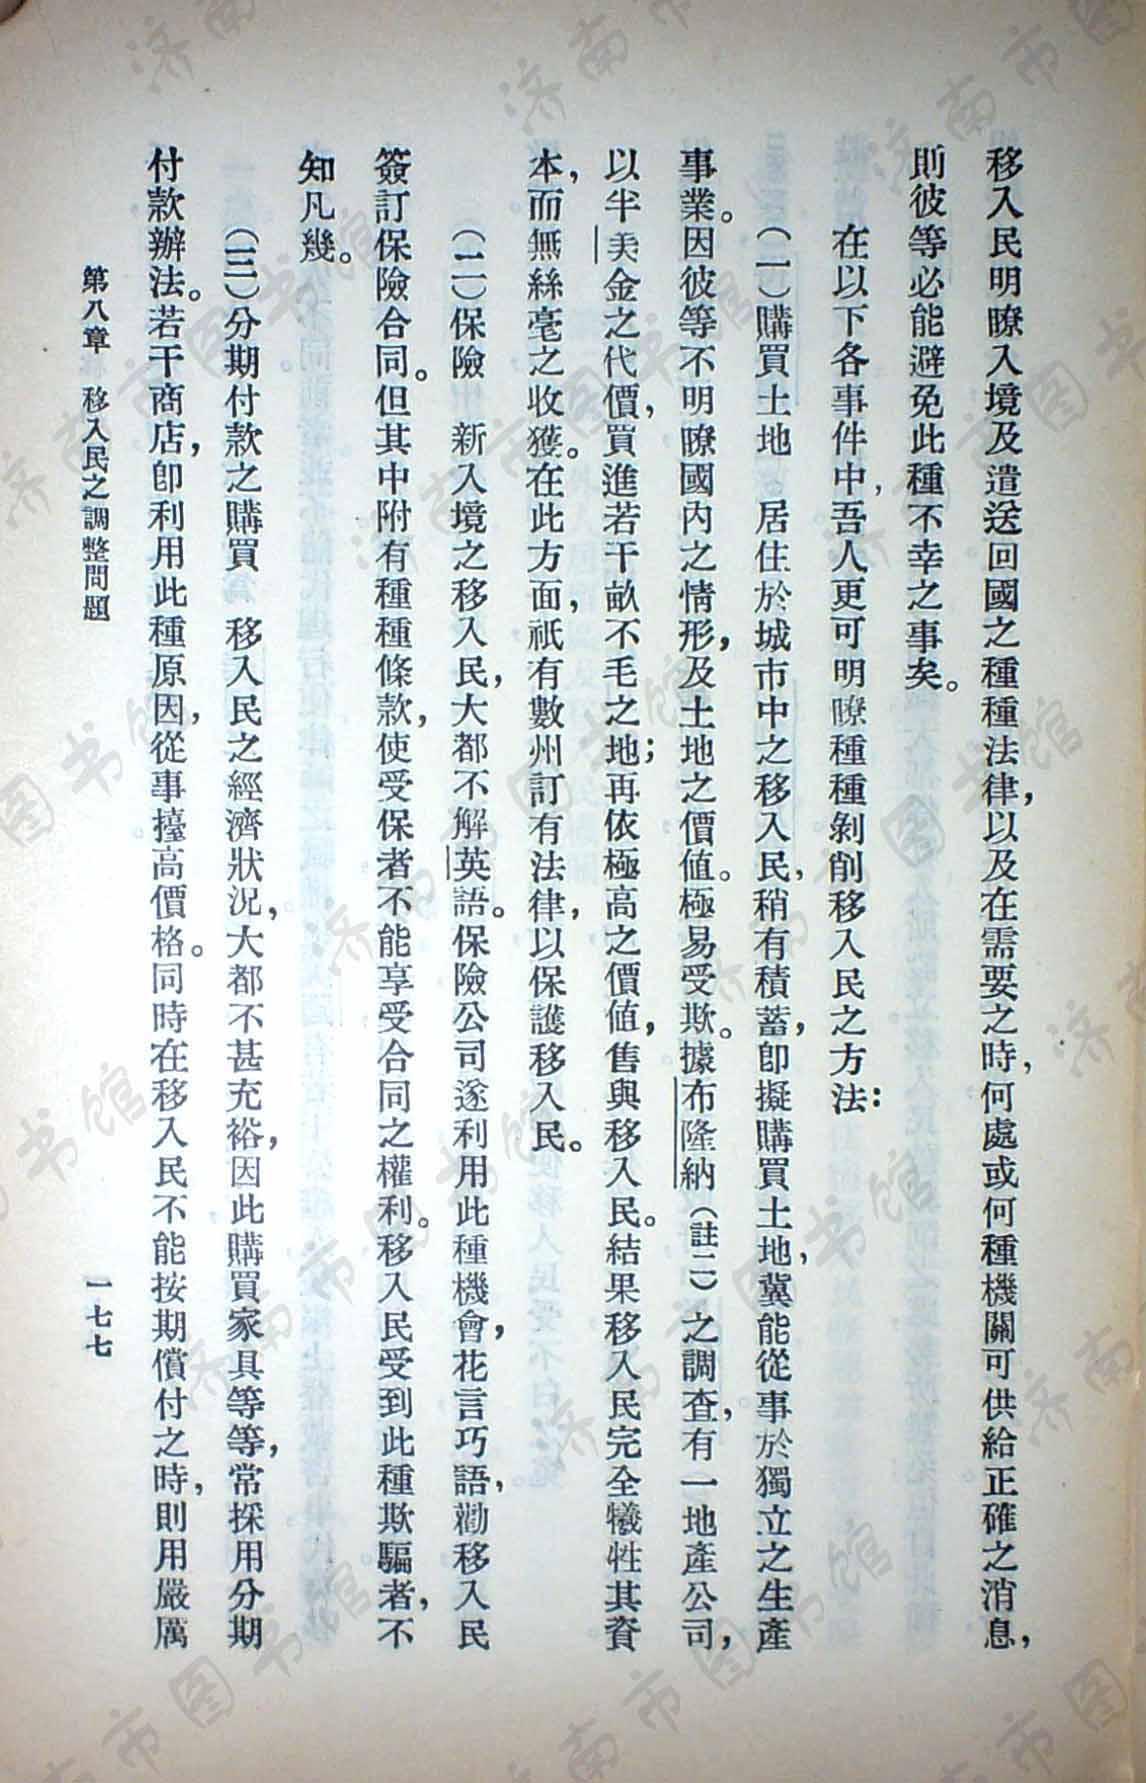 移入民明瞭入境及遣送回國之種種法律，以及在需要之時，何處或何種機關可供給正確之消息，
則彼等必能避免此種不幸之事矣。
在以下各事件中，吾人更可明瞭種種剝削移入民之方法：
（一）購買土地　居住於城市中之移入民，稍有積蓄，卽擬購買土地，冀能從事於獨立之生產
事業。因彼等不明瞭國內之情形，及土地之價值。極易受欺。據布隆納（註二）之調查，有一地產公司，
以半美金之代價，買進若干畝不毛之地；再依極高之價值，售與移入民。結果移入民完全犧牲其資
本，而無絲毫之收獲。在此方面，祇有數州訂有法律，以保護移入民。
（二）保險　新入境之移入民，大都不解英語。保險公司遂利用此種機會，花言巧語，勸移入民
簽訂保險合同。但其中附有種種條款，使受保者不能享受合同之權利。移入民受到此種欺騙者，不
知凡幾。
（三）分期付款之購買　移入民之經濟狀況，大都不甚充裕，因此購買家具等等，常採用分期
付款辦法。若干商店，卽利用此種原因，從事擡高價格。同時在移入民不能按期償付之時，則用嚴厲
第八章　移入民之調整問題
一七七
济南市图书馆